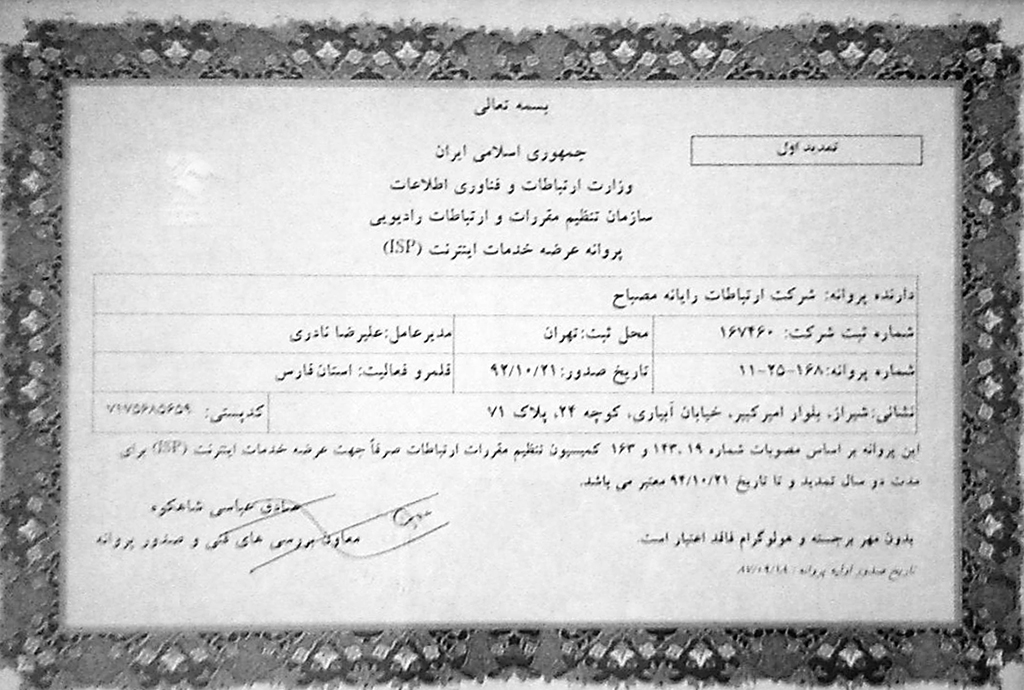 بسمه تعالی
تمدید اول
جمهوری اسلامی ایران
وزارت ارتباطات و فناوری اطلاعات
سازمان تنظیم مقررات و ارتباطات رادیویی
پروانه عرضه خدمات اینترنت (ISP)
دارنده پروانه: شرکت ارتباطات رایانه مصباح
شماره ثبت شرکت: ۱۶۷۴۶۰ محل ثبت:تهران مدیرعامل:علیرضا نادری
شماره پروانه:۱۶۸-۲۵-۱۱ تاریخ صدور:۹۲/۱۰/۲۱ قلمرو فعالیت: استان فارس
نشانی:شیراز، بلوار امیرکبیر، خیابان آبیاری، کوچه ۲۴، پلاک ۷۱ کدپستی: ۷۱۷۵۶۸۵۶۵۹
این پروانه بر اساس مصوبات شماره ۱۹، ۱۴۳ و ۱۶۳ کمیسیون تنظیم مقررات ارتباطات صرفاً جهت عرضه خدمات اینترنت (ISP) برای
مدت دو سال تمدید و تا تاریخ ۹۴/۱۰/۲۱ معتبر می باشد.
صادق عباسی شاهکوه
معاون بررسی های فنی و صدور پروانه
بدون مهر برجسته و هولوگرام فاقد اعتبار است.
تاریخ صدور اولیه پروانه : ۸۷/۰۹/۱۸